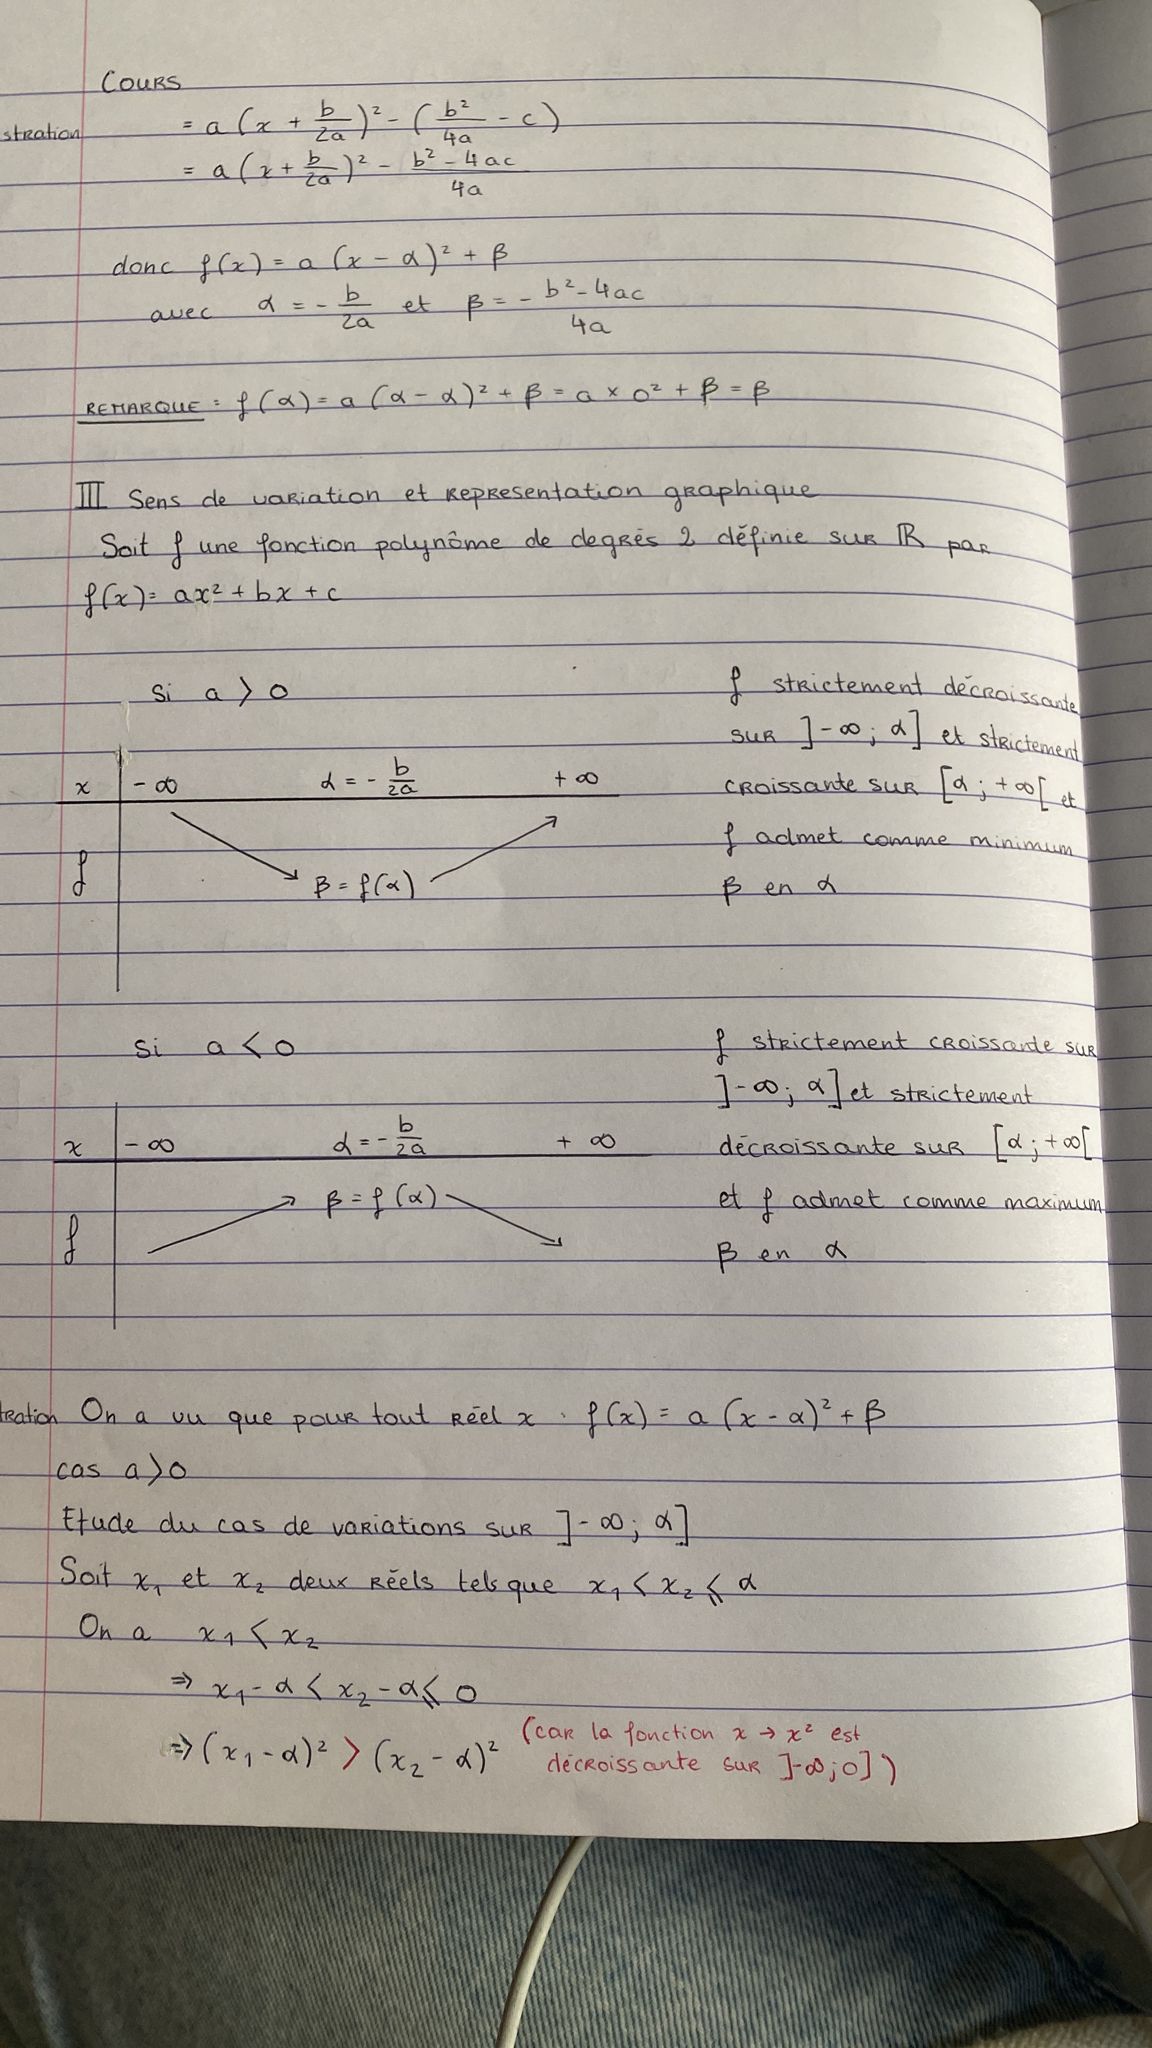 COURS
stration
= a (x + b/2a)² - (b²/4a - c)
= a (x + b/2a)² - (b² - 4ac)/4a
donc f(x) = a (x - α)² + β
avec α = - b/2a et β = - (b² - 4ac)/4a
REMARQUE : f(α) = a (α - α)² + β = a × 0² + β = β
III Sens de variation et representation graphique
Soit f une fonction polynôme de degrés 2 définie sur ℝ par
f(x) = ax² + bx + c
si a > 0
x -∞ α = - b/2a +∞
f β = f(α)
f strictement décroissante
sur ]-∞ ; α] et strictement
croissante sur [α ; +∞[ et
f admet comme minimum
β en α
si a < 0
x -∞ α = - b/2a +∞
f β = f(α)
f strictement croissante sur
]-∞ ; α] et strictement
décroissante sur [α ; +∞[
et f admet comme maximum
β en α
tration On a vu que pour tout réel x . f(x) = a (x - α)² + β
cas a > 0
Etude du cas de variations sur ]-∞ ; α]
Soit x₁ et x₂ deux réels tels que x₁ < x₂ ⩽ α
On a x₁ < x₂
⇒ x₁ - α < x₂ - α ⩽ 0
⇒ (x₁ - α)² > (x₂ - α)² (car la fonction x → x² est
décroissante sur ]-∞ ; 0])